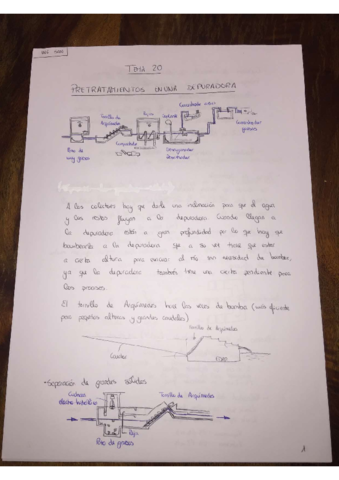 TEMA 20
PRETRATAMIENTOS EN UNA DEPURADORA
Tornillo de
Arquímedes
Pozo de
muy gruesos
Desarenador
Desengrasador
Concentrador
grasas
A los colectores hay que darle una inclinación para que el agua
y los restos fluyan a la depuradora. Cuando llegan a
la depuradora están a gran profundidad por lo que hay que
a la depuradora que a su vez tiene que estar
a cierta altura para enviar al río sin necesidad de bombeo,
ya que la depuradora tendrá una cierta pendiente para
los procesos.
El tornillo de Arquímedes hace las veces de bomba (más eficiente
para pequeñas alturas y grandes caudales)
Tornillo de Arquímedes
Colector
EDAR
Separación de grandes sólidos
Cuchara
electro hidráulica
Tornillo de Arquímedes
Reja
Pozo de gruesos
1